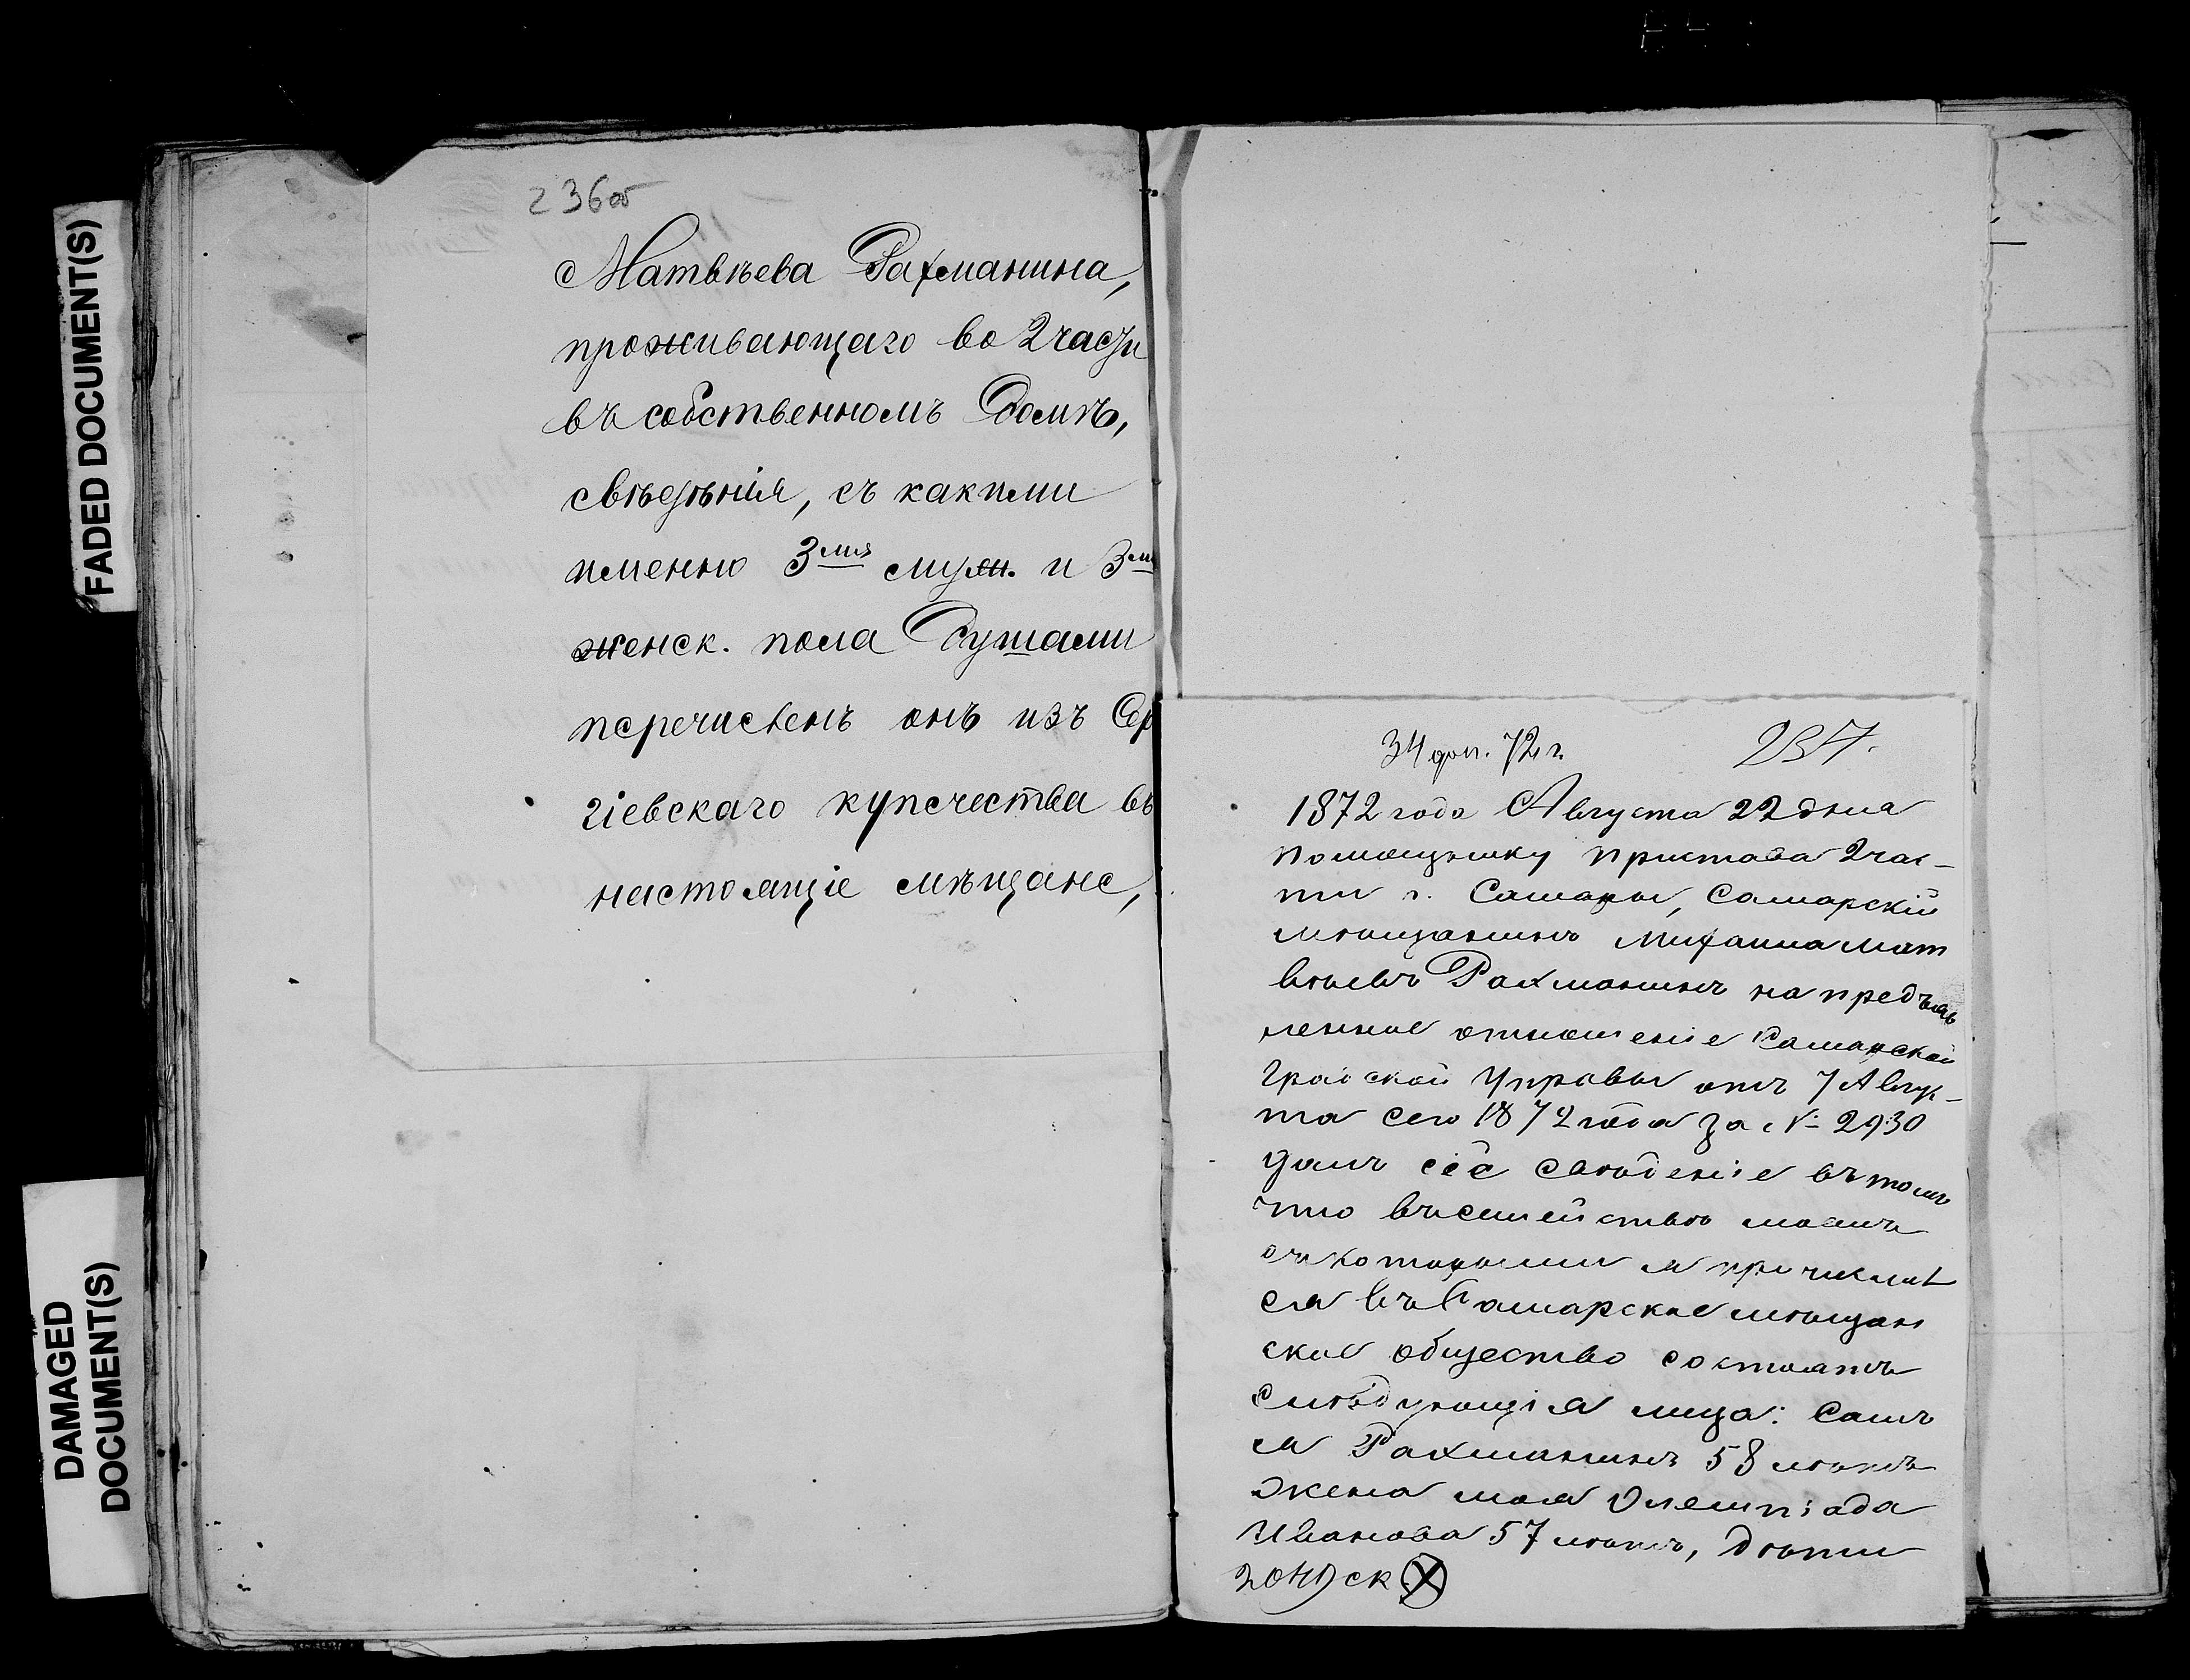 FADED DOCUMENT(S)
DAMAGED
DOCUMENT(S)
236об
Матвѣева Рахманина,
проживающаго во 2 части
въ собственномъ домѣ,
свѣдѣнія, съ какими
именно 3мя муж. и 3мя
женск. пола душами
перечисленъ онъ изъ Сер
гіевскаго купечества въ
настоящіе мѣщане,
34 доп. 72 г.
237.
1872 года Августа 22 дня
помощнику пристава 2 час-
ти г. Самары, Самарскій
мѣщанинъ Михаила Мат
вѣевъ Рахманинъ на предъяв
ленное отношеніе Самарской
Градской Управы отъ 7 Авгус-
та сего 1872 года за № 2930
далъ сіе сведеніе въ томъ
что въ семействѣ моемъ
съ которыми я причислил
ся въ Самарское мѣщан
ское общество состоятъ
слѣдующія лица: самъ
я Рахманинъ 58 лѣтъ
жена моя Олемпіада
Иванова 57 лѣтъ, дѣти